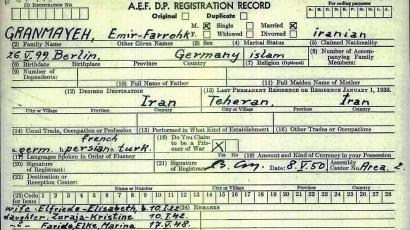 A.E.F. D.P. REGISTRATION RECORD
For coding purposes
(1) REGISTRATION NO.
Original Duplicate
A. B. C. D. E. F. G. H. I. J.
M. Single Married
GRANMAYEH, Emir-Farrokh F. Widowed Divorced iranian
(2) Family Name Other Given Names (3) Sex (4) Marital Status (5) Claimed Nationality
26.V.99. Berlin, Germany islam
(6) Birthdate Birthplace Province Country (7) Religion (Optional) (8) Number of Accompanying Family Members:
(9) Number of Dependents:
(10) Full Name of Father (11) Full Maiden Name of Mother
(12) DESIRED DESTINATION (13) LAST PERMANENT RESIDENCE OR RESIDENCE JANUARY 1, 1938.
Iran Teheran, Iran
City or Village Province Country City or Village Province Country
(14) Usual Trade, Occupation or Profession (15) Performed in What Kind of Establishment (16) Other Trades or Occupations
french
germ. persian, turk.
(18) Do You Claim to be a Prisoner of War
Yes No
(17) Languages Spoken in Order of Fluency (19) Amount and Kind of Currency in your Possession
(20) Signature of Registrant: (21) Signature of Registrar: Date: 8.V.50 Assembly Center No. Area 2.
(22) Destination or Reception Center:
Name or Number City or Village Province Country
(23) Code for Issue 1 2 3 4 5 6 7 8 9 10 11 12 13 14 15 16 17 18 19 20 21 22 23 24 25 26 27 28
(24) REMARKS
wife: Elfriede-Elisabeth, b. 10.I.22
daughter: Zoraja-Kristine 10.I.42.
-"- Faride, Elke, Marina 17.V.48.